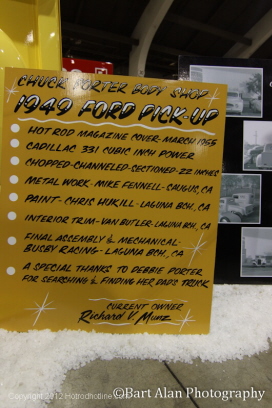 CHUCK PORTER BODY SHOP
1949 FORD PICK-UP
HOT ROD MAGAZINE COVER-MARCH 1955
CADILLAC 331 CUBIC INCH POWER
CHOPPED-CHANNELED-SECTIONED-22 INCHES
METAL WORK-MIKE FENNELL-SAUGUS, CA
PAINT-CHRIS HUKILL-LAGUNA BCH, CA
INTERIOR TRIM-VAN BUTLER-LAGUNA BCH, CA
FINAL ASSEMBLY & MECHANICAL-
BUSBY RACING-LAGUNA BCH., CA
A SPECIAL THANKS TO DEBBIE PORTER
FOR SEARCHING & FINDING HER DADS TRUCK
CURRENT OWNER
Richard V. Munz
Copyright 2012 Hotrodhotline
©Bart Alan Photography